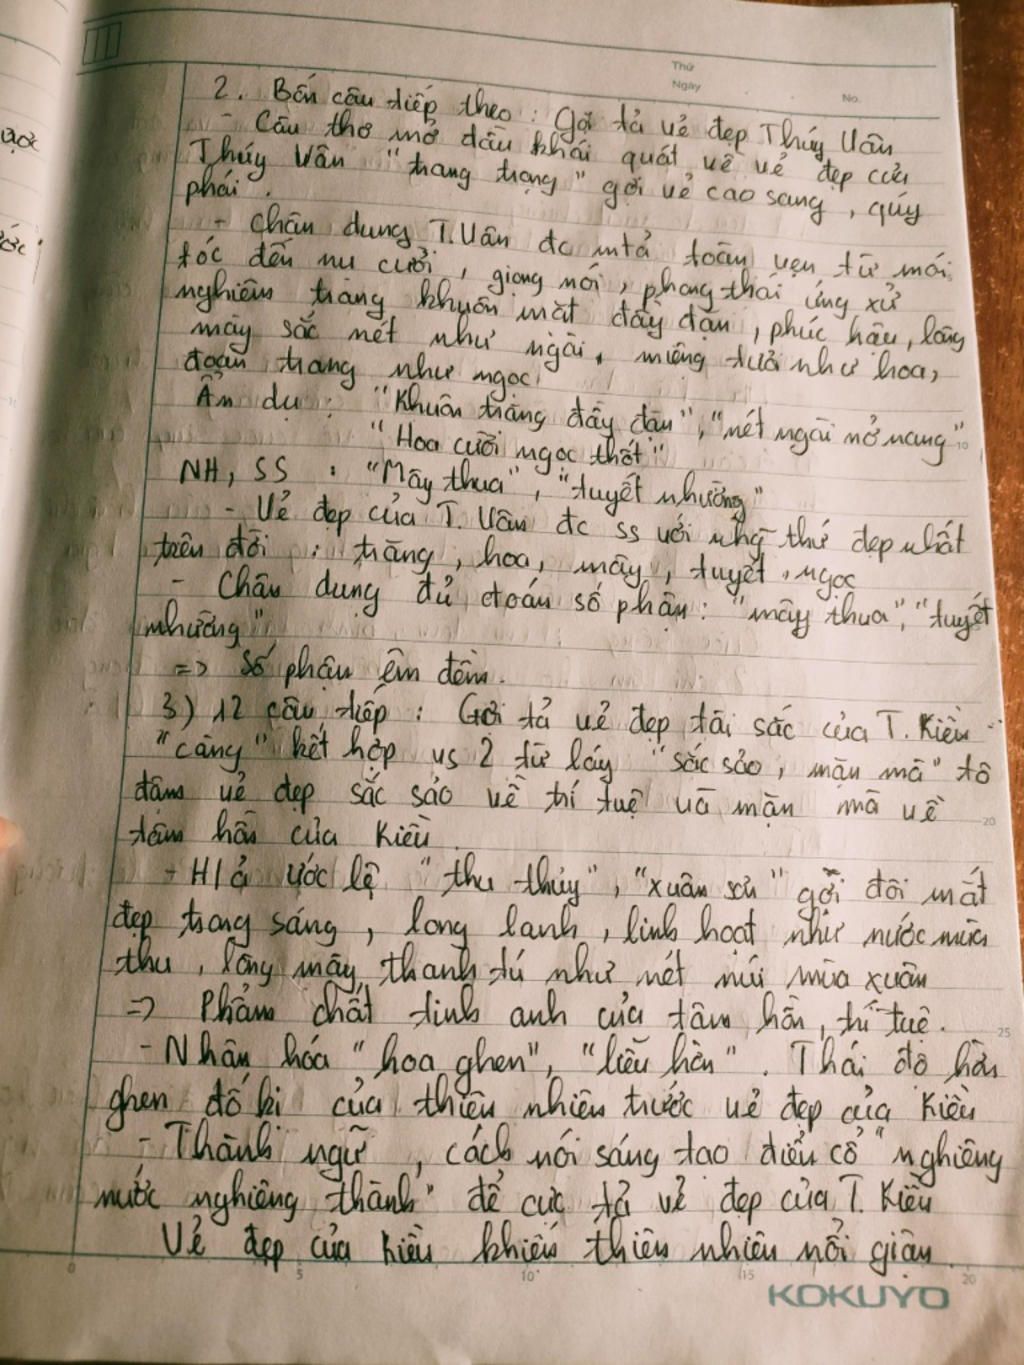 Thứ
Ngày
No.
2. Bốn câu tiếp theo : Gợi tả vẻ đẹp Thúy Vân
- Câu thơ mở đầu khái quát về vẻ đẹp của
Thúy Vân "trang trọng" gợi vẻ cao sang, quý
phái.
- Chân dung T.Vân đc mtả toàn vẹn từ mái
tóc đến nụ cười, giọng nói, phong thái ứng xử
nghiêm trang khuôn mặt đầy đặn, phúc hậu, lông
mày sắc nét như ngài, miệng tươi như hoa,
đoan trang như ngọc
Ẩn dụ : "Khuôn trăng đầy đặn", "nét ngài nở nang"
"Hoa cười ngọc thốt"
NH, SS : "Mây thua", "tuyết nhường"
- Vẻ đẹp của T. Vân đc ss với nhg thứ đẹp nhất
trên đời : trăng, hoa, mây, tuyết, ngọc
- Chân dung dự đoán số phận : "mây thua", "tuyết
nhường"
=> Số phận êm đềm.
3) 12 câu tiếp : Gợi tả vẻ đẹp tài sắc của T. Kiều
"càng" kết hợp vs 2 từ láy "sắc sảo, mặn mà" tô
đậm vẻ đẹp sắc sảo về trí tuệ và mặn mà về
tâm hồn của Kiều.
- H/ả ước lệ "thu thủy", "xuân sơn" gợi đôi mắt
đẹp trong sáng, long lanh, linh hoạt như nước mùa
thu, lông mày thanh tú như nét núi mùa xuân
=> Phẩm chất tinh anh của tâm hồn, trí tuệ.
- Nhân hóa "hoa ghen", "liễu hờn". Thái độ hờn
ghen đố kị của thiên nhiên trước vẻ đẹp của Kiều
- Thành ngữ, cách nói sáng tạo điển cố "nghiêng
nước nghiêng thành" để cực tả vẻ đẹp của T. Kiều
Vẻ đẹp của Kiều khiến thiên nhiên nổi giận.
5 10 15 20
KOKUYO